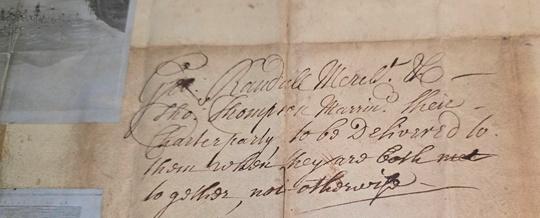 Geo. Randall Merct. &
Tho: Thompson Marrinr. there
Charterparty, to be Delivered to
them when they are both met
together, not otherwise